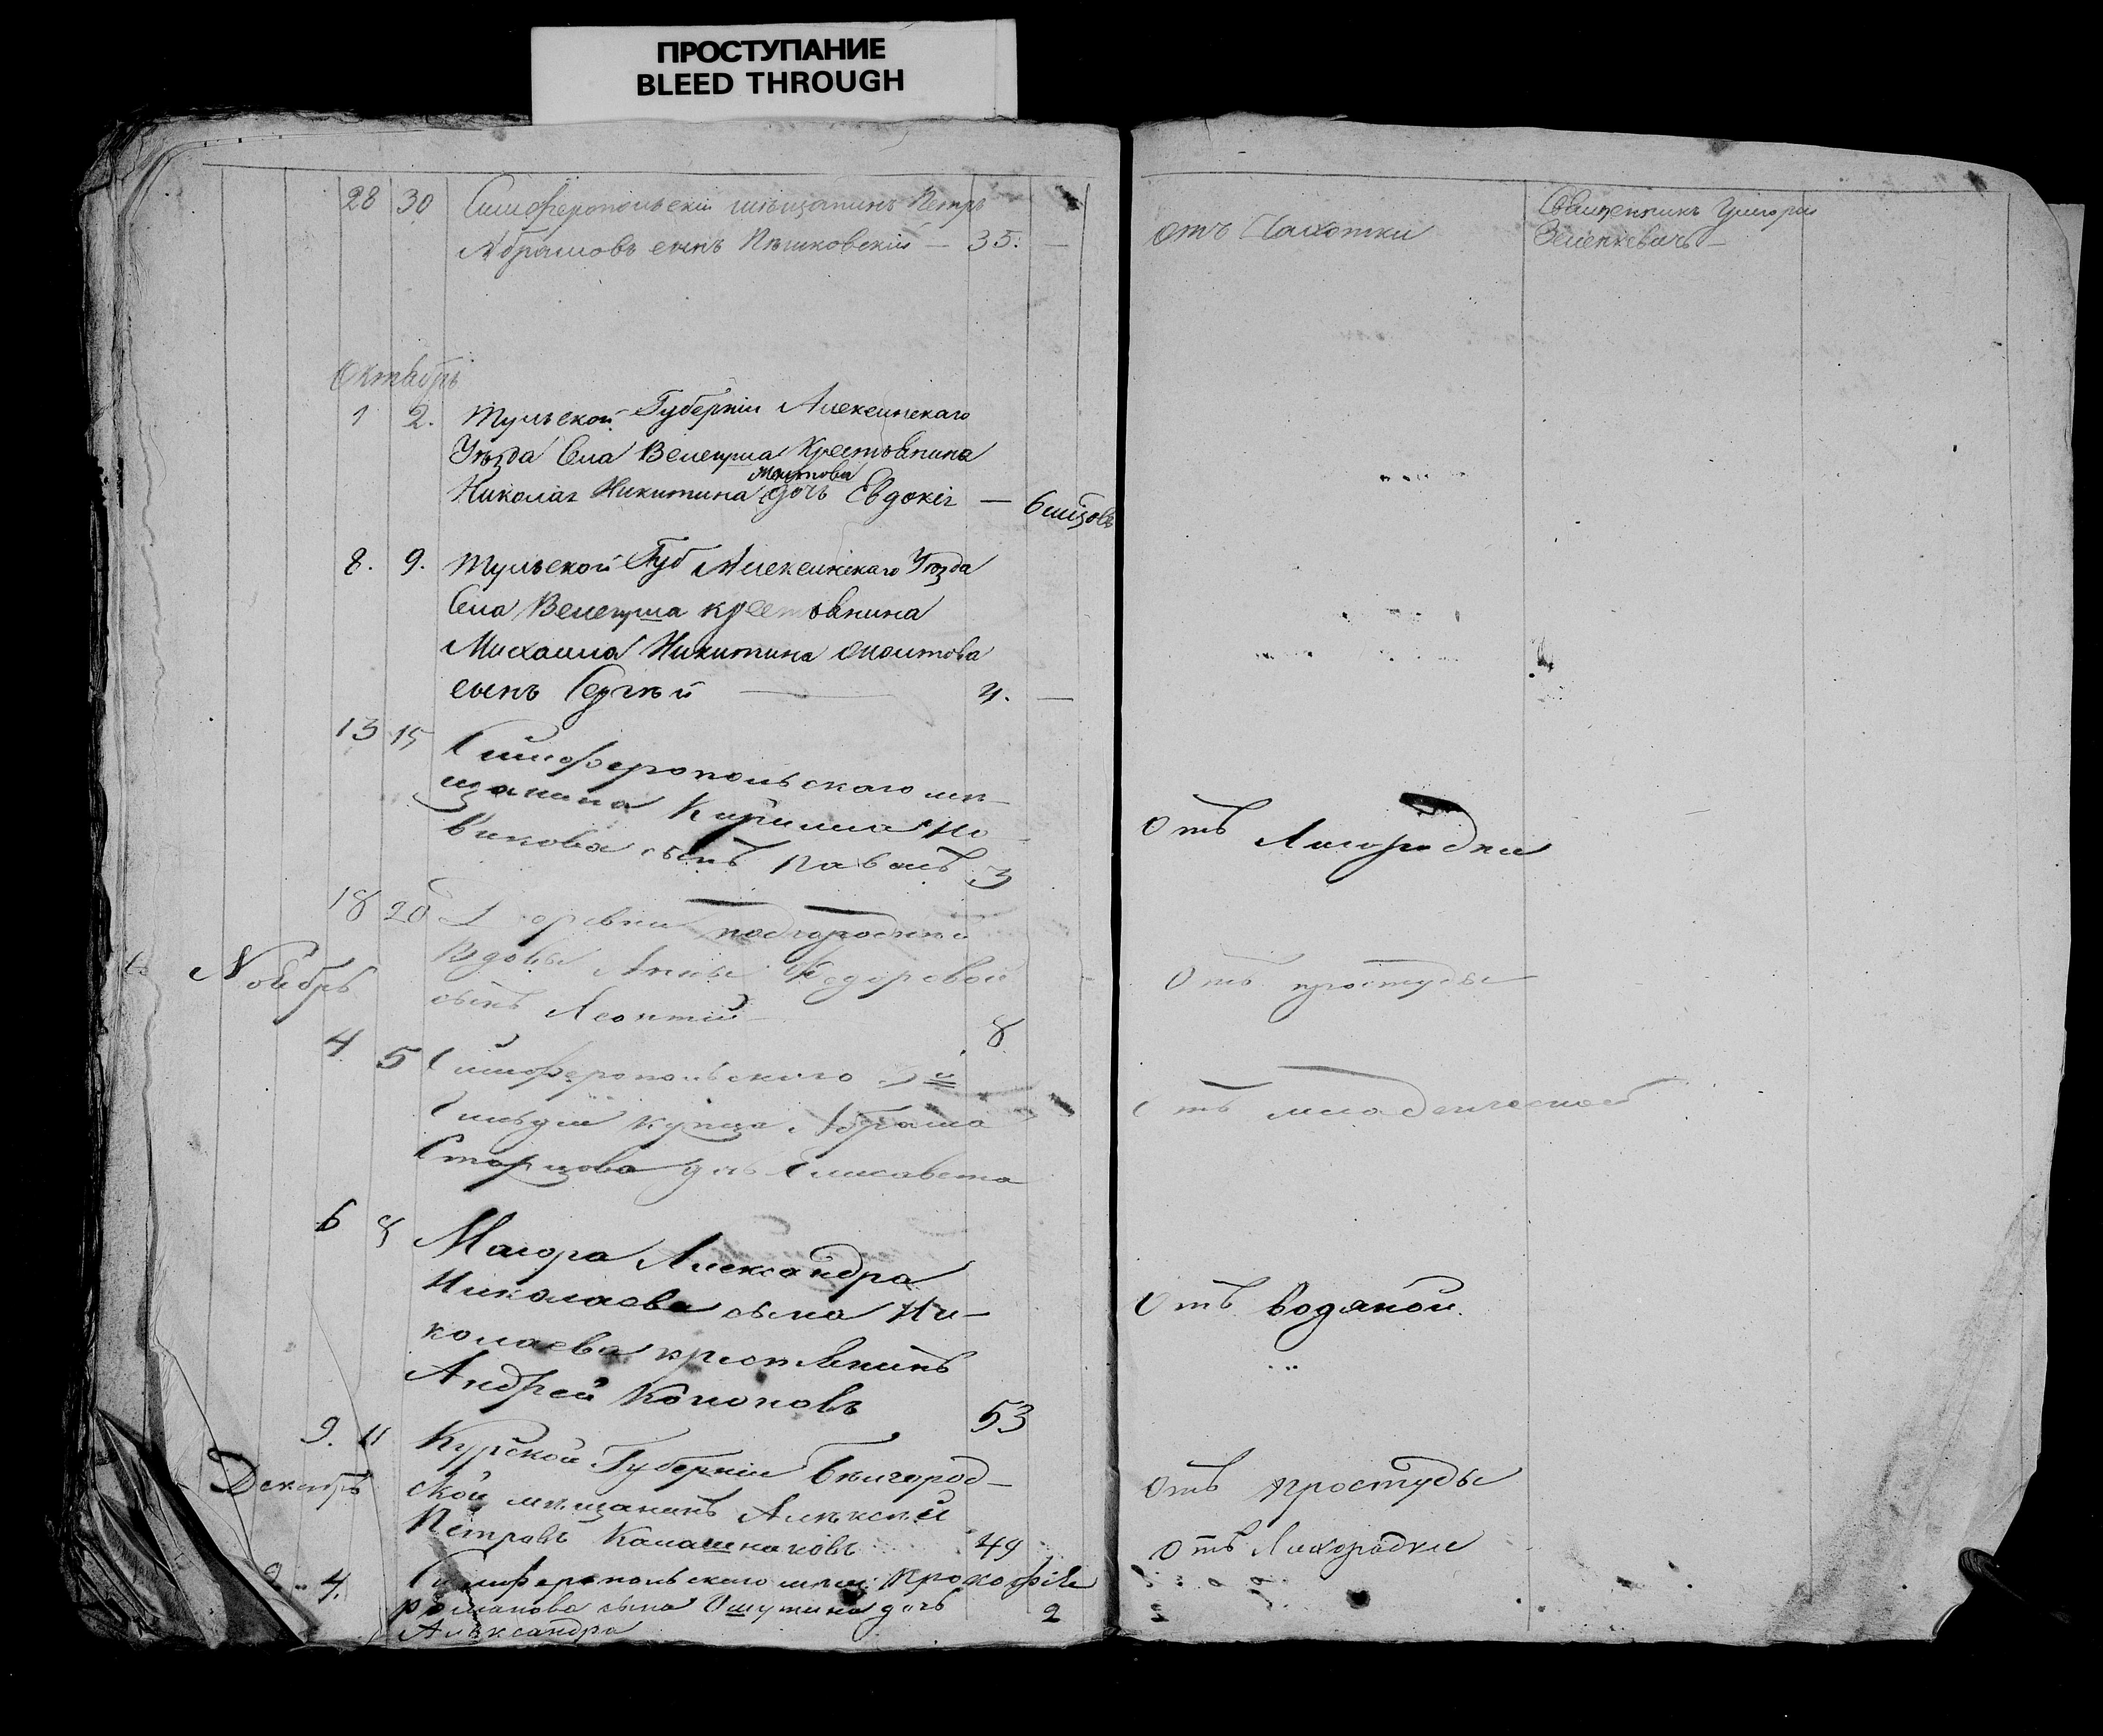 ПРОСТУПАНИЕ
BLEED THROUGH
28 30 Симферопольскій мѣщанинъ Петръ
Абрамовъ сынъ Пѣшковскій — 35. —
отъ Чахотки
Священникъ Григорій
Зеленкевичъ —
Октябрь
1 2. Тульской Губерніи Алексинскаго
Уѣзда Села Велегуша Крестьянина
Николая Никитина дочь Евдокія — 6 мѣцовъ
8. 9. Тульской Губ Алексинскаго Уѣзда
Села Велегуша крестьянина
Михаила Никитина
сынъ Сергѣй — 4. —
13 15 Симферопольскаго мѣ-
щанина Кирилла Но-
викова сынъ Павелъ 3
Отъ Лихорадки
18 20 Деревни подгородней
Вдовы Анны Федоровой
сынъ Леонтій 8
Отъ простуды
Ноябрь
4 5 Симферопольскаго 3й
Гильдіи купца Абрама
Старцова дочь Елисавета
Отъ младенческой
6 8 Маіора Александра
Николаева сына Ни-
колаева крестьянинъ
Андрей Кононовъ 53
Отъ водяной.
9. 11 Курской Губерніи Бѣлгород-
ской мѣщанинъ Алѣксѣй
Петровъ Калашниковъ 49
Отъ простуды
Декабрь
2 4. Симферопольскаго мѣщ: Прокофія
Романова сына дочь 2
Алѣксандра
Отъ Лихорадки